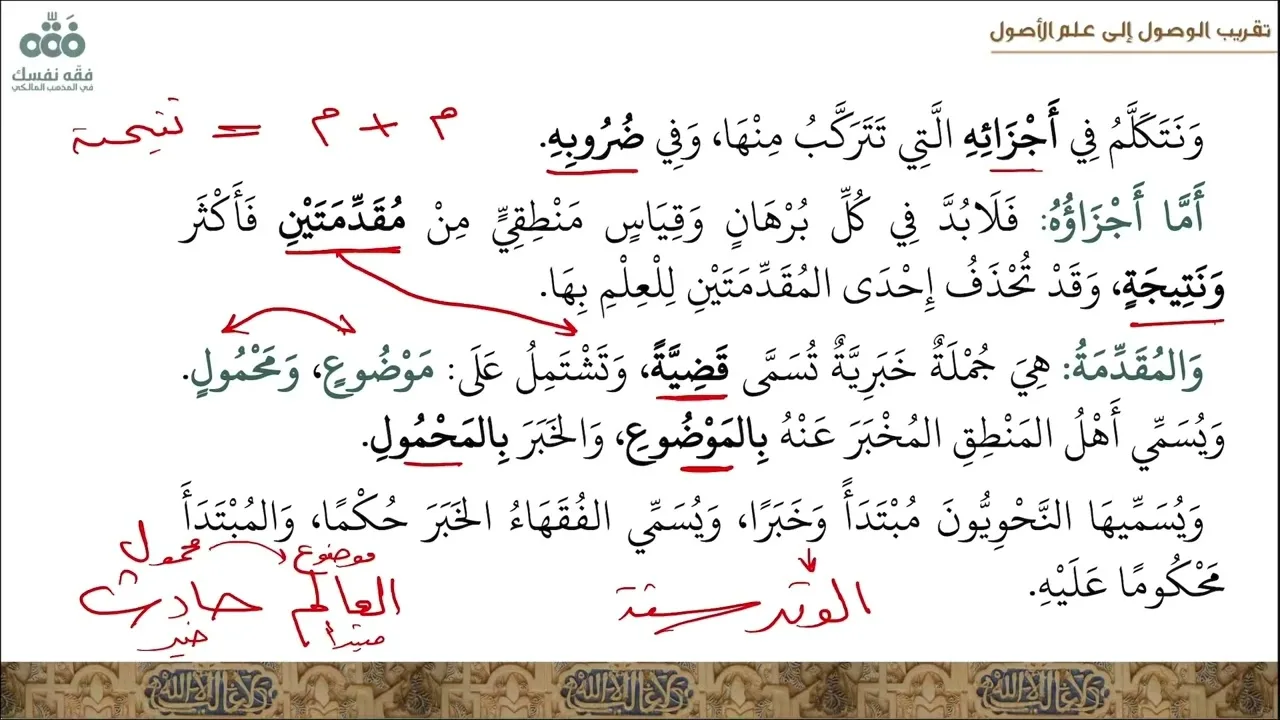 تقريب الوصول إلى علم الأصول
فقه نفسك
في المذهب المالكي
م + م = نتيجة
وَنَتَكَلَّمُ فِي أَجْزَائِهِ الَّتِي تَتَرَكَّبُ مِنْهَا، وَفِي ضُرُوبِهِ.
أَمَّا أَجْزَاؤُهُ: فَلَابُدَّ فِي كُلِّ بُرْهَانٍ وَقِيَاسٍ مَنْطِقِيٍّ مِنْ مُقَدِّمَتَيْنِ فَأَكْثَرَ
وَنَتِيجَةٍ، وَقَدْ تُحْذَفُ إِحْدَى المُقَدِّمَتَيْنِ لِلْعِلْمِ بِهَا.
وَالمُقَدِّمَةُ: هِيَ جُمْلَةٌ خَبَرِيَّةٌ تُسَمَّى قَضِيَّةً، وَتَشْتَمِلُ عَلَى: مَوْضُوعٍ، وَمَحْمُولٍ.
وَيُسَمِّي أَهْلُ المَنْطِقِ المُخْبَرَ عَنْهُ بِالمَوْضُوعِ، وَالخَبَرَ بِالمَحْمُولِ.
وَيُسَمِّيهَا النَّحْوِيُّونَ مُبْتَدَأً وَخَبَرًا، وَيُسَمِّي الفُقَهَاءُ الخَبَرَ حُكْمًا، وَالمُبْتَدَأَ
مَحْكُومًا عَلَيْهِ.
موضوع محمول
العالم حادث
مبتدأ خبر
الوتر سنة